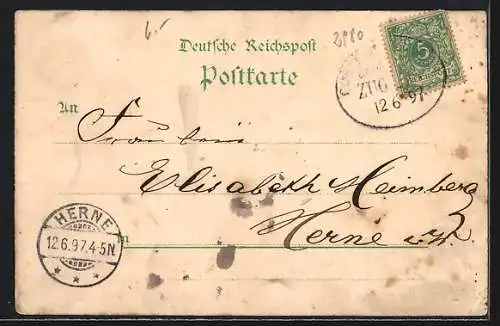 2980
Deutsche Reichspost
Postkarte
5
ZUG
12 6 97
An
Fräulein
Elisabeth Heimberg
Herne i/W.
HERNE
12.6.97.4-5N
in